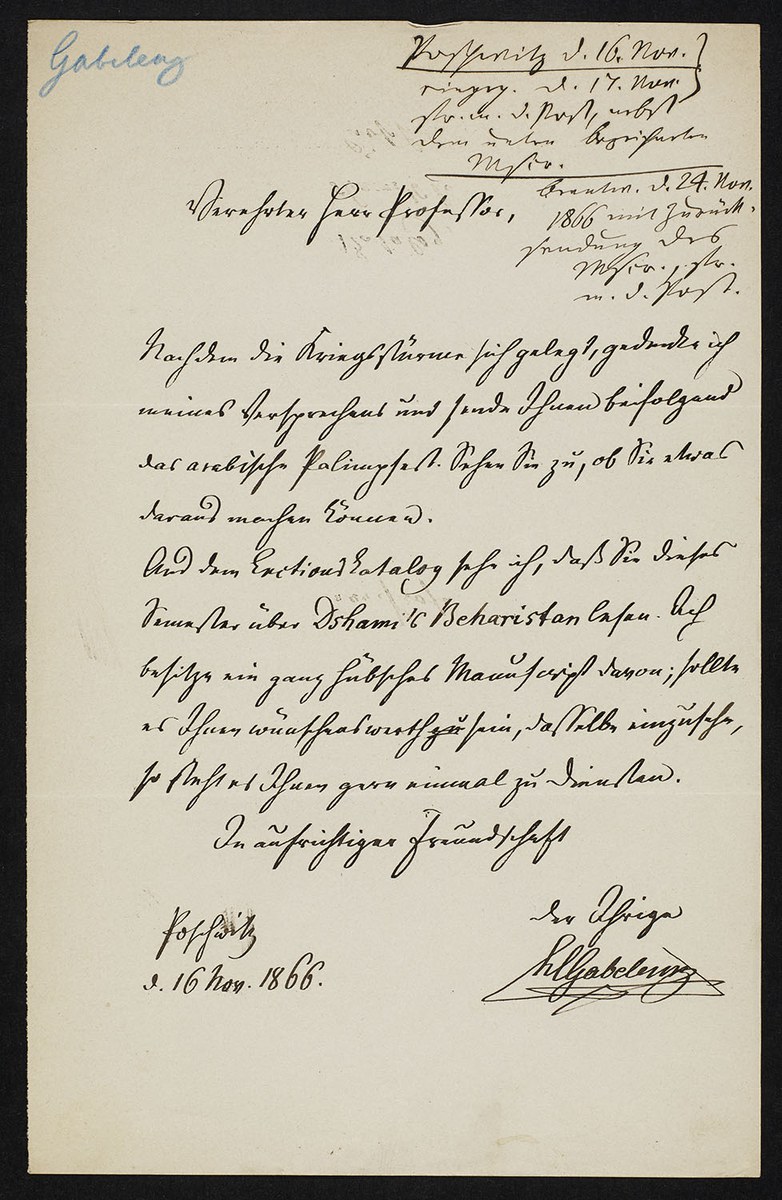 Gabelentz
Poschwitz d. 16. Nov.
eingeg. d. 17. Nov.
fr. m. d. Post, nebst
dem unten bezeichneten
Mscr.
beantw. d. 24. Nov.
1866 mit Zurück-
sendung des
Mscr., fr.
m. d. Post.
Verehrter Herr Professor,
Nachdem die Kriegsstürme sich gelegt, gedenke ich
meines Versprechens und sende Ihnen beifolgend
das arabische Palimpsest. Sehen Sie zu, ob Sie etwas
daraus machen können.
Aus dem Lectionskatalog sehe ich, daß Sie dieses
Semester über Dshami's Beharistan lesen. Ich
besitze ein ganz hübsches Manuscript davon; sollte
es Ihnen wünschenswerth zu sein, dasselbe einzusehn,
so steht es Ihnen gern einmal zu Diensten.
In aufrichtiger Freundschaft
der Ihrige
HCGabelentz
Poschwitz
d. 16 Nov. 1866.